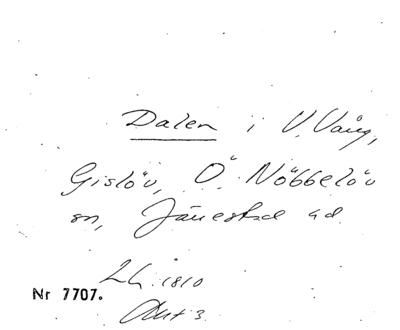 Dalen i V. Vång,
Gislöv, Ö. Nöbbelöv
sn, Järrestad hd.
LH. 1810
Akt 3.
Nr 7707.